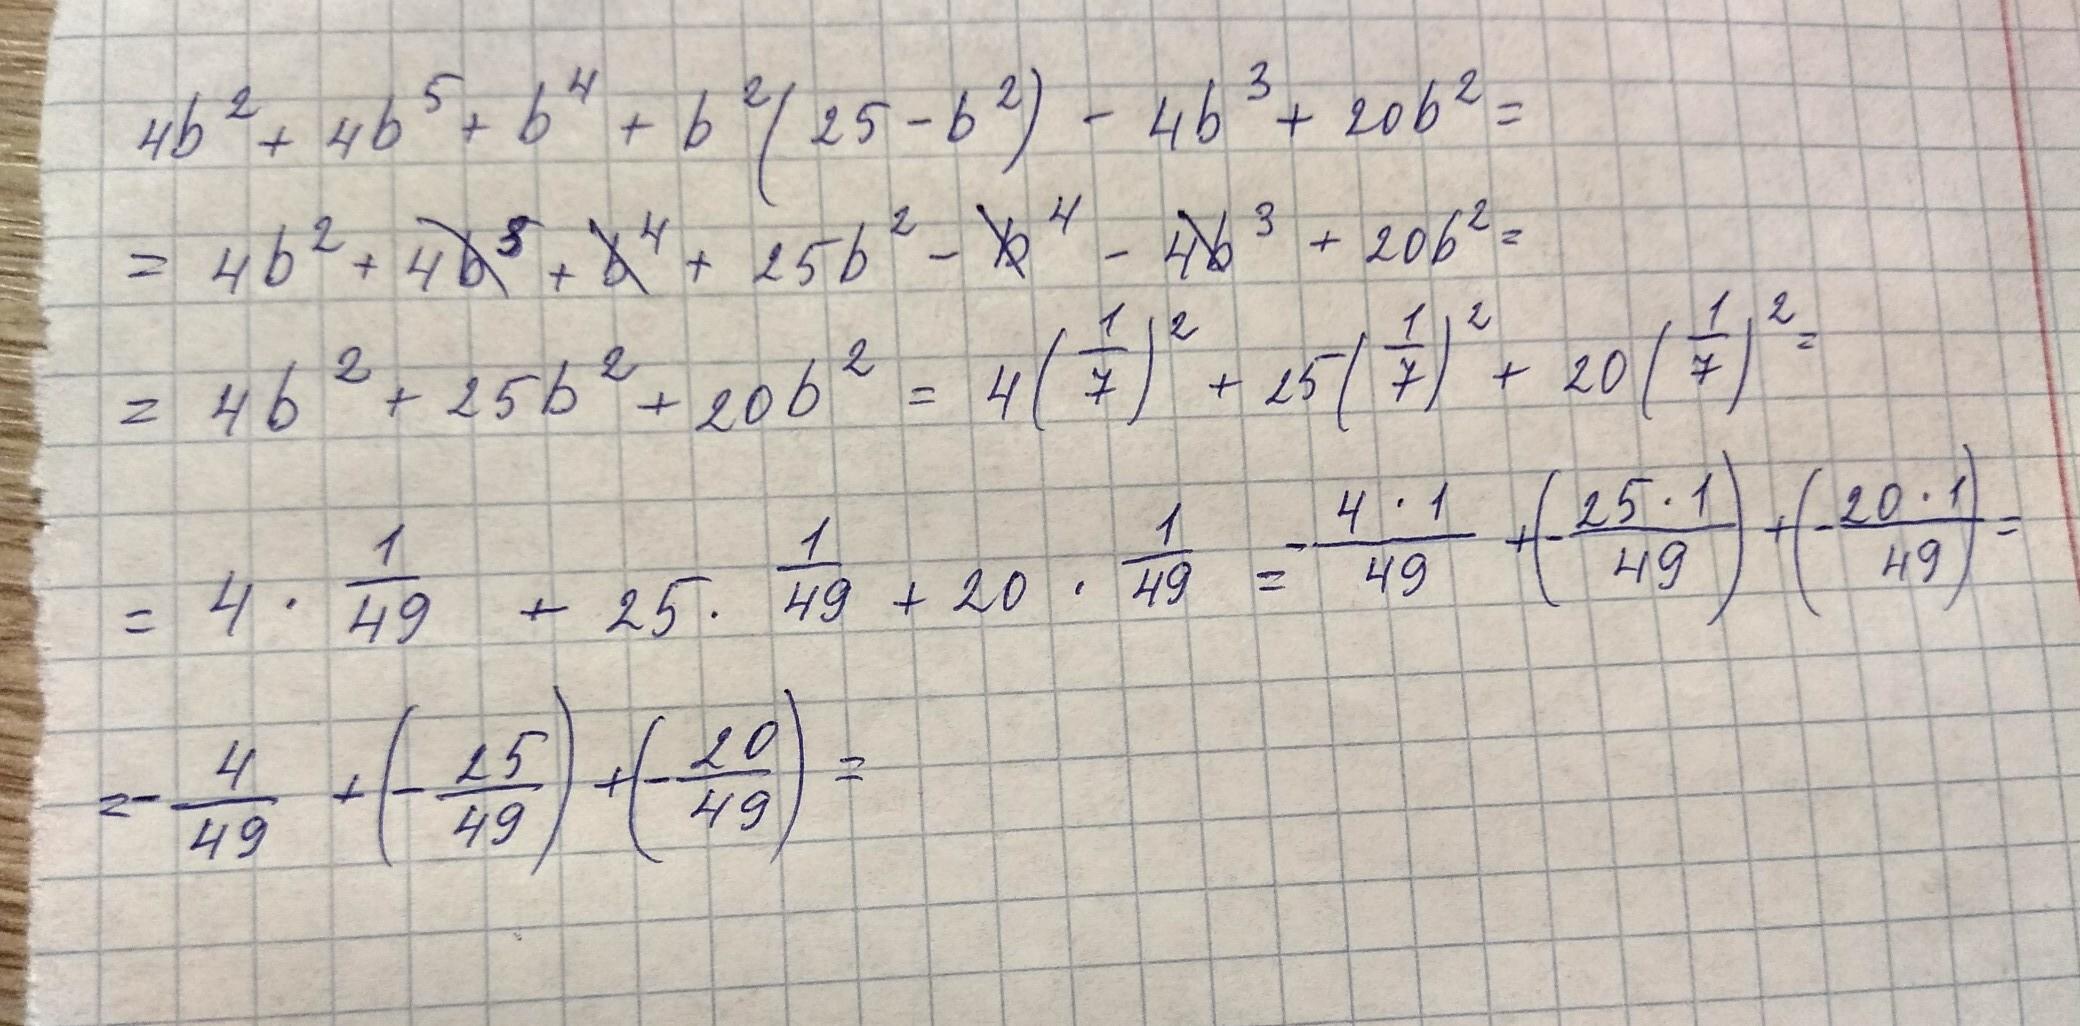 4b² + 4b⁵ + b⁴ + b²(25 - b²) - 4b³ + 20b² =
= 4b² + 4b³ + b⁴ + 25b² - b⁴ - 4b³ + 20b² =
= 4b² + 25b² + 20b² = 4(1/7)² + 25(1/7)² + 20(1/7)² =
= 4 · 1/49 + 25 · 1/49 + 20 · 1/49 = - 4·1/49 + (- 25·1/49) + (- 20·1/49) =
= - 4/49 + (- 25/49) + (- 20/49) =